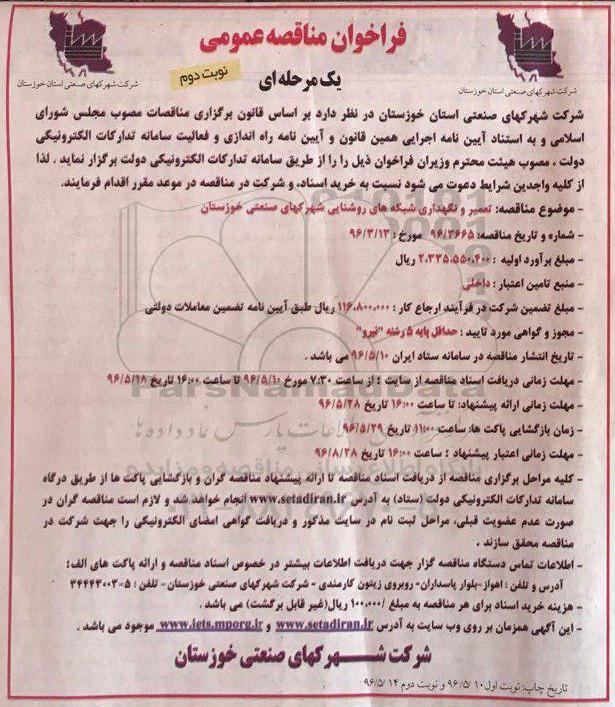 فراخوان مناقصه عمومی
یک مرحله ای
نوبت دوم
شرکت شهرکهای صنعتی استان خوزستان
شرکت شهرکهای صنعتی استان خوزستان
شرکت شهرکهای صنعتی استان خوزستان در نظر دارد بر اساس قانون برگزاری مناقصات مصوب مجلس شورای
اسلامی و به استناد آیین نامه اجرایی همین قانون و آیین نامه راه اندازی و فعالیت سامانه تدارکات الکترونیکی
دولت ، مصوب هیئت محترم وزیران فراخوان ذیل را را از طریق سامانه تدارکات الکترونیکی دولت برگزار نماید . لذا
از کلیه واجدین شرایط دعوت می شود نسبت به خرید اسناد، و شرکت در مناقصه در موعد مقرر اقدام فرمایند.
- موضوع مناقصه: تعمیر و نگهداری شبکه های روشنایی شهرکهای صنعتی خوزستان
- شماره و تاریخ مناقصه: ۹۶/۳۶۶۵ مورخ : ۹۶/۳/۱۳
- مبلغ برآورد اولیه : ۲،۳۳۵،۵۵۰،۴۰۰ ریال
- منبع تامین اعتبار : داخلی
- مبلغ تضمین شرکت در فرآیند ارجاع کار : ۱۱۶،۸۰۰،۰۰۰ ریال طبق آیین نامه تضمین معاملات دولتی
- مجوز و گواهی مورد تایید : حداقل پایه ۵ رشته "نیرو"
- تاریخ انتشار مناقصه در سامانه ستاد ایران ۹۶/۵/۱۰ می باشد .
- مهلت زمانی دریافت اسناد مناقصه از سایت : از ساعت ۷:۳۰ مورخ ۹۶/۵/۱۰ تا ساعت ۱۶:۰۰ تاریخ ۹۶/۵/۱۸
- مهلت زمانی ارائه پیشنهاد: تا ساعت ۱۶:۰۰ تاریخ ۹۶/۵/۲۸
- زمان بازگشایی پاکت ها: ساعت ۱۱:۰۰ تاریخ ۹۶/۵/۲۹
- مهلت زمانی اعتبار پیشنهاد : ساعت ۱۶:۰۰ تاریخ ۹۶/۸/۲۸
- کلیه مراحل برگزاری مناقصه از دریافت اسناد مناقصه تا ارائه پیشنهاد مناقصه گران و بازگشایی پاکت ها از طریق درگاه
سامانه تدارکات الکترونیکی دولت (ستاد) به آدرس www.setadiran.ir انجام خواهد شد و لازم است مناقصه گران در
صورت عدم عضویت قبلی، مراحل ثبت نام در سایت مذکور و دریافت گواهی امضای الکترونیکی را جهت شرکت در
مناقصه محقق سازند .
- اطلاعات تماس دستگاه مناقصه گزار جهت دریافت اطلاعات بیشتر در خصوص اسناد مناقصه و ارائه پاکت های الف:
آدرس و تلفن : اهواز-بلوار پاسداران- روبروی زیتون کارمندی - شرکت شهرکهای صنعتی خوزستان- تلفن : ۵-۳۴۴۴۳۰۰۳
- هزینه خرید اسناد برای هر مناقصه به مبلغ /۱۰۰،۰۰۰ ریال(غیر قابل برگشت) می باشد .
- این آگهی همزمان بر روی وب سایت به آدرس www.setadiran.ir و www.iets.mporg.ir موجود می باشد .
شرکت شهرکهای صنعتی خوزستان
تاریخ چاپ: نوبت اول ۹۶/۵/۱۰ و نوبت دوم ۹۶/۵/۱۴